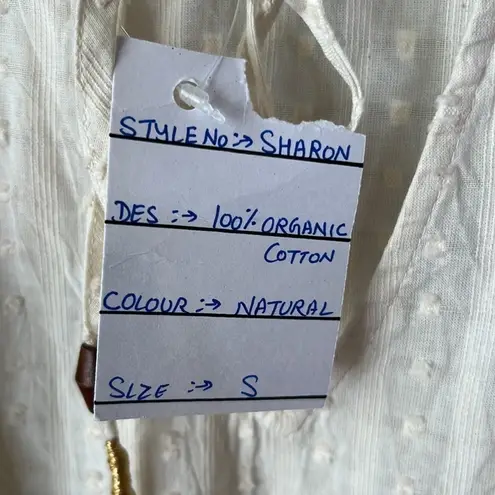 STYLE No :-> SHARON
DES :-> 100% ORGANIC
COTTON
COLOUR :-> NATURAL
SIZE :-> S